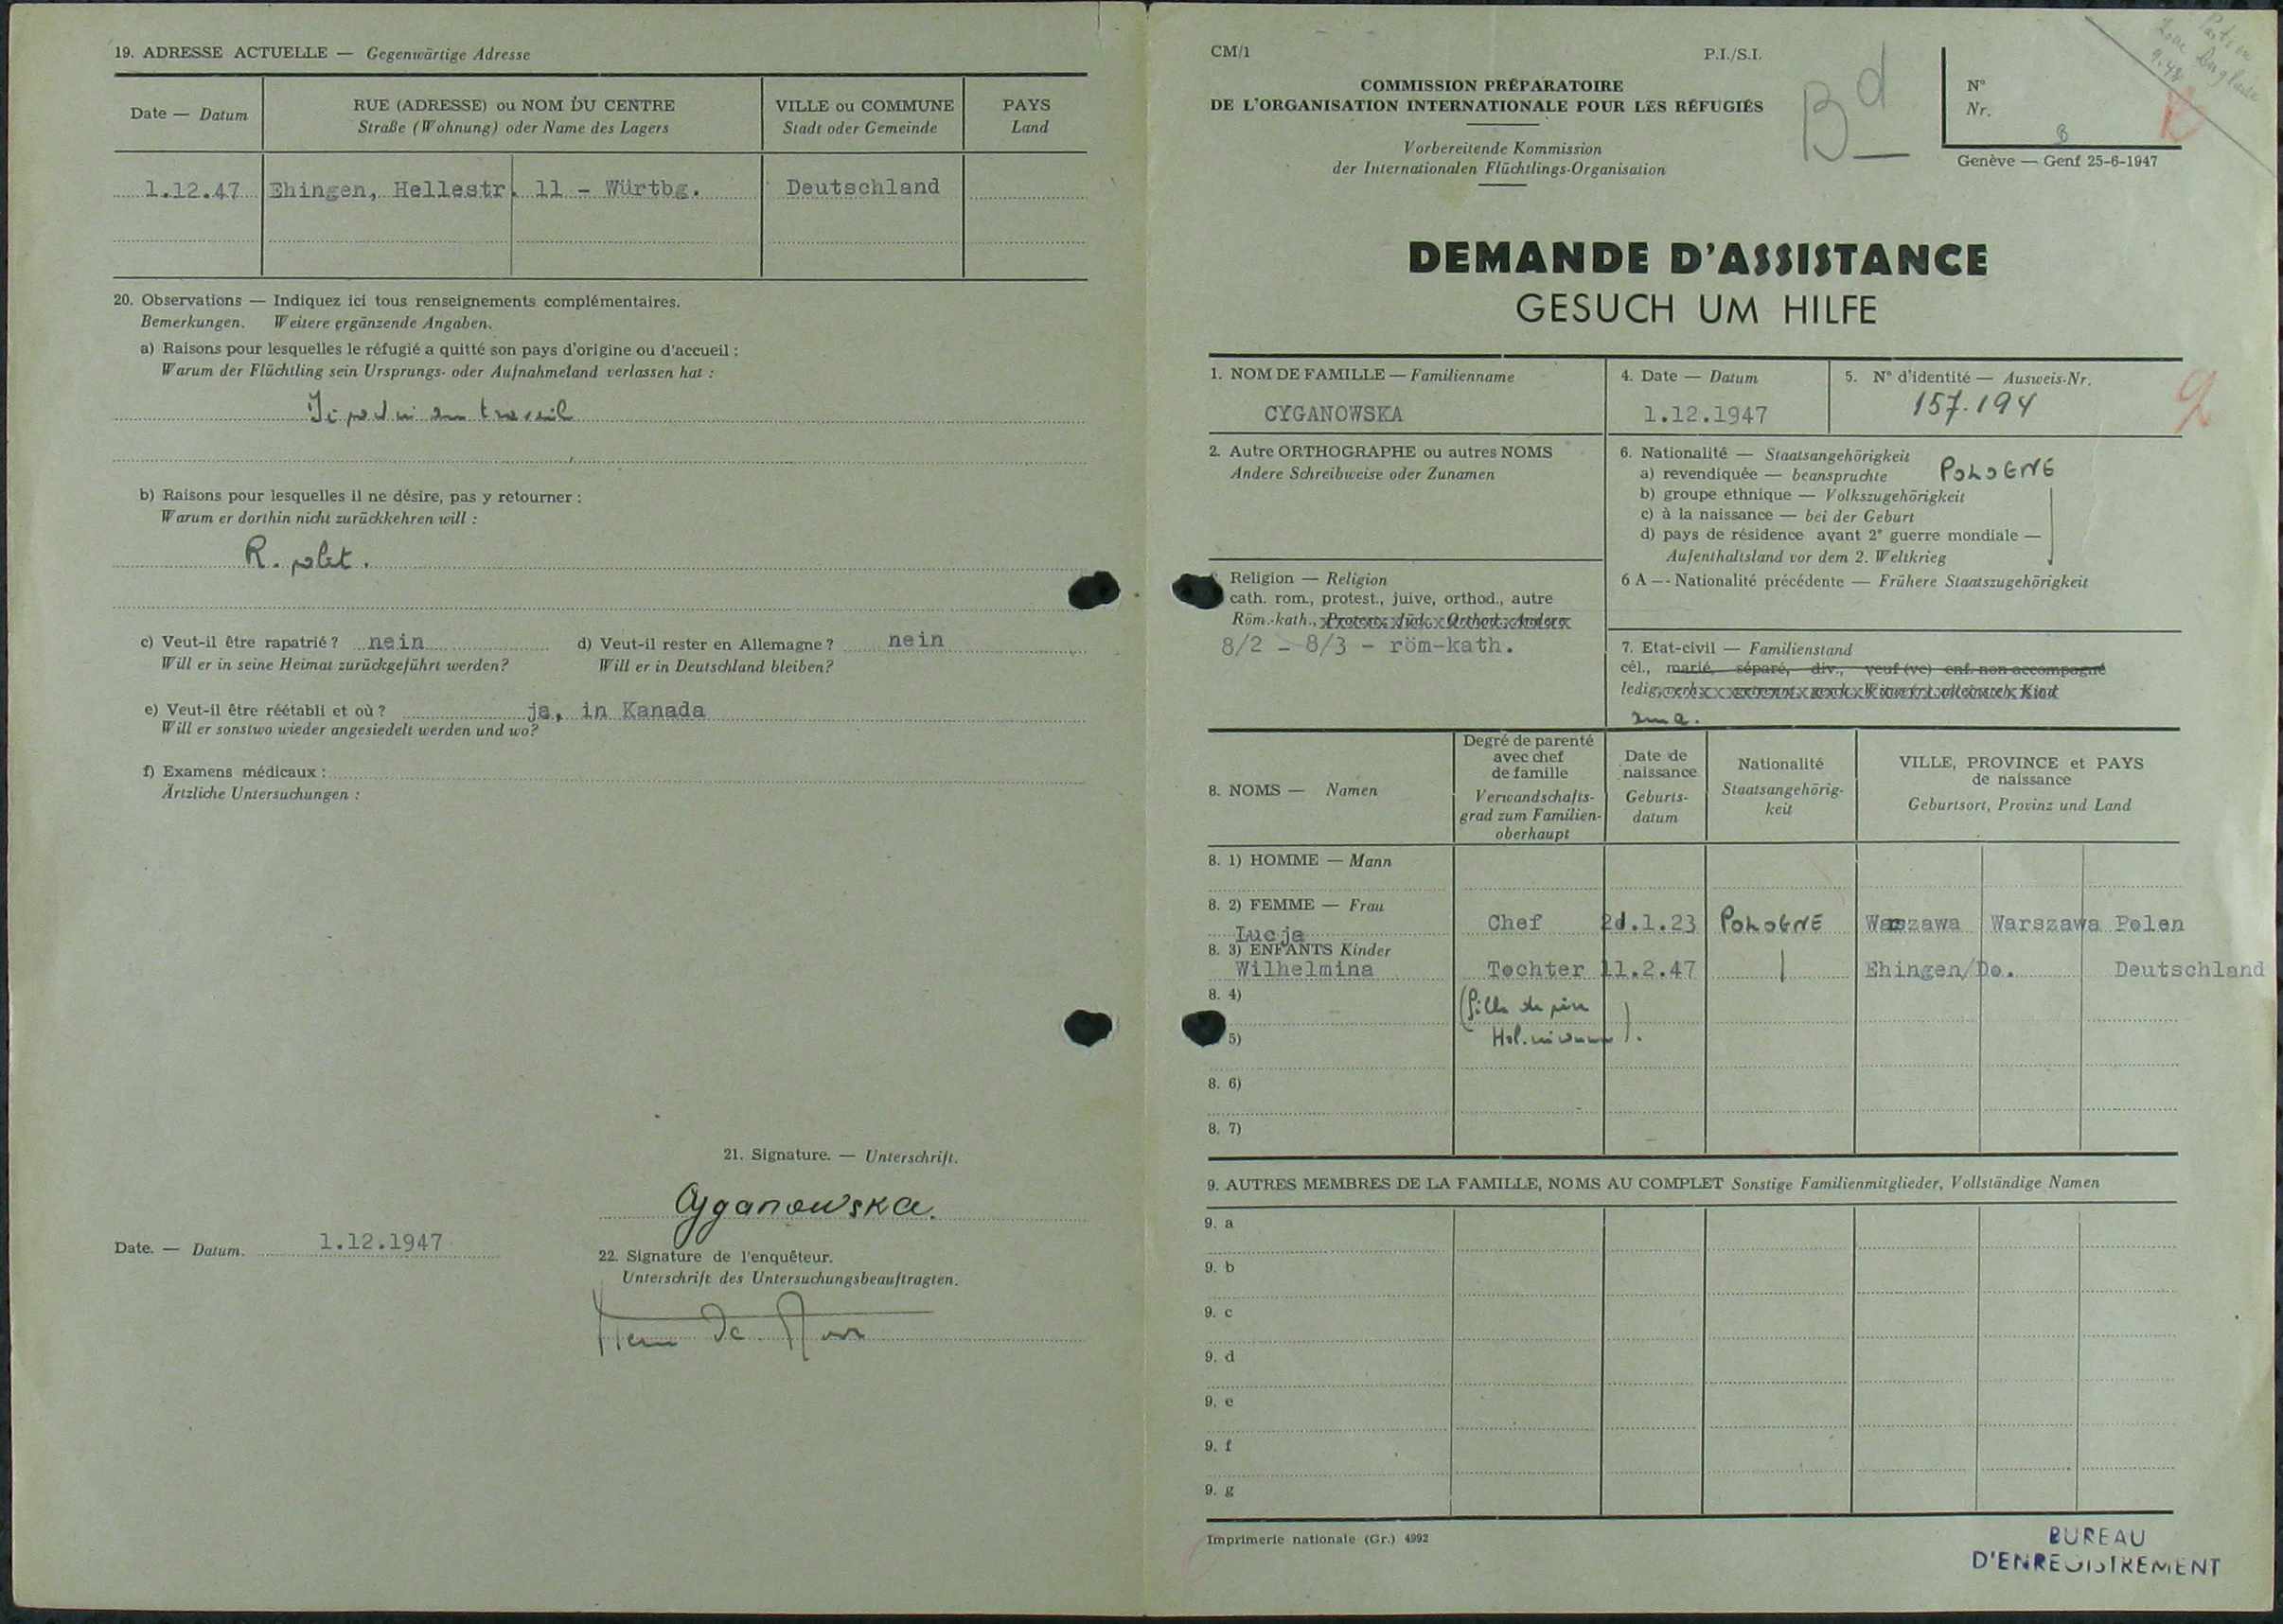 19. ADRESSE ACTUELLE — Gegenwärtige Adresse
Date — Datum
RUE (ADRESSE) ou NOM DU CENTRE
Straße (Wohnung) oder Name des Lagers
VILLE ou COMMUNE
Stadt oder Gemeinde
PAYS
Land
1.12.47 Ehingen, Hellestr. 11 - Würtbg. Deutschland
20. Observations — Indiquez ici tous renseignements complémentaires.
Bemerkungen. Weitere ergänzende Angaben.
a) Raisons pour lesquelles le réfugié a quitté son pays d'origine ou d'accueil :
Warum der Flüchtling sein Ursprungs- oder Aufnahmeland verlassen hat :
au travail
b) Raisons pour lesquelles il ne désire, pas y retourner :
Warum er dorthin nicht zurückkehren will :
R. polit.
c) Veut-il être rapatrié ? nein
Will er in seine Heimat zurückgeführt werden?
d) Veut-il rester en Allemagne ? nein
Will er in Deutschland bleiben?
e) Veut-il être réétabli et où ? ja, in Kanada
Will er sonstwo wieder angesiedelt werden und wo?
f) Examens médicaux :
Ärtzliche Untersuchungen :
21. Signature. — Unterschrift.
Cyganowska.
Date. — Datum. 1.12.1947
22. Signature de l'enquêteur.
Unterschrift des Untersuchungsbeauftragten.
CM/1
P.I./S.I.
COMMISSION PRÉPARATOIRE
DE L'ORGANISATION INTERNATIONALE POUR LES RÉFUGIÉS
Vorbereitende Kommission
der Internationalen Flüchtlings-Organisation
Bd
N°
Nr.
8
Genève — Genf 25-6-1947
9.48
DEMANDE D'ASSISTANCE
GESUCH UM HILFE
1. NOM DE FAMILLE — Familienname
CYGANOWSKA
4. Date — Datum
1.12.1947
5. N° d'identité — Ausweis-Nr.
157.194
2. Autre ORTHOGRAPHE ou autres NOMS
Andere Schreibweise oder Zunamen
6. Nationalité — Staatsangehörigkeit
a) revendiquée — beanspruchte POLOGNE
b) groupe ethnique — Volkszugehörigkeit
c) à la naissance — bei der Geburt
d) pays de résidence avant 2e guerre mondiale —
Aufenthaltsland vor dem 2. Weltkrieg
Religion — Religion
cath. rom., protest., juive, orthod., autre
Röm.-kath., Protest., Jüd., Orthod., Andere
8/2 - 8/3 - röm-kath.
6 A — Nationalité précédente — Frühere Staatszugehörigkeit
7. Etat-civil — Familienstand
cél., marié, séparé, div., veuf (ve) enf. non accompagné
ledig, verh., getrennt, gesch., Witwe(r), alleinsteh. Kind
8. NOMS — Namen
Degré de parenté
avec chef
de famille
Verwandschafts-
grad zum Familien-
oberhaupt
Date de
naissance
Geburts-
datum
Nationalité
Staatsangehörig-
keit
VILLE, PROVINCE et PAYS
de naissance
Geburtsort, Provinz und Land
8. 1) HOMME — Mann
8. 2) FEMME — Frau
Lucja Chef 2d.1.23 POLOGNE Waszawa Warszawa Polen
8. 3) ENFANTS Kinder
Wilhelmina Tochter 11.2.47 Ehingen/Do. Deutschland
8. 4)
(fille de père
5)
8. 6)
8. 7)
9. AUTRES MEMBRES DE LA FAMILLE, NOMS AU COMPLET Sonstige Familienmitglieder, Vollständige Namen
9. a
9. b
9. c
9. d
9. e
9. f
9. g
Imprimerie nationale (Gr.) 4992
BUREAU
D'ENREGISTREMENT